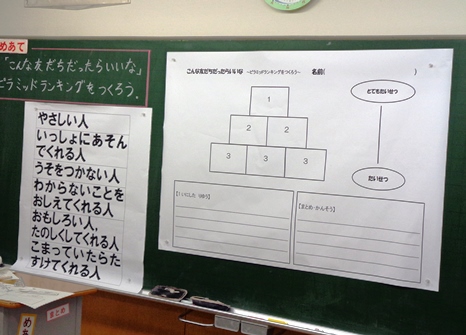 めあて
「こんな友だちだったらいいな」
ピラミッドランキングをつくろう。
やさしい人
いっしょにあそん
でくれる人
うそをつかない人
わからないことを
おしえてくれる人
おもしろい人、
たのしくしてくれる人
こまっていたらた
すけてくれる人
こんな友だちだったらいいな ~ピラミッドランキングをつくろう~ 名前( )
1
2 2
3 3 3
とてもたいせつ
たいせつ
【1ばんにした りゆう】
【まとめ・かんそう】
まとめ
め